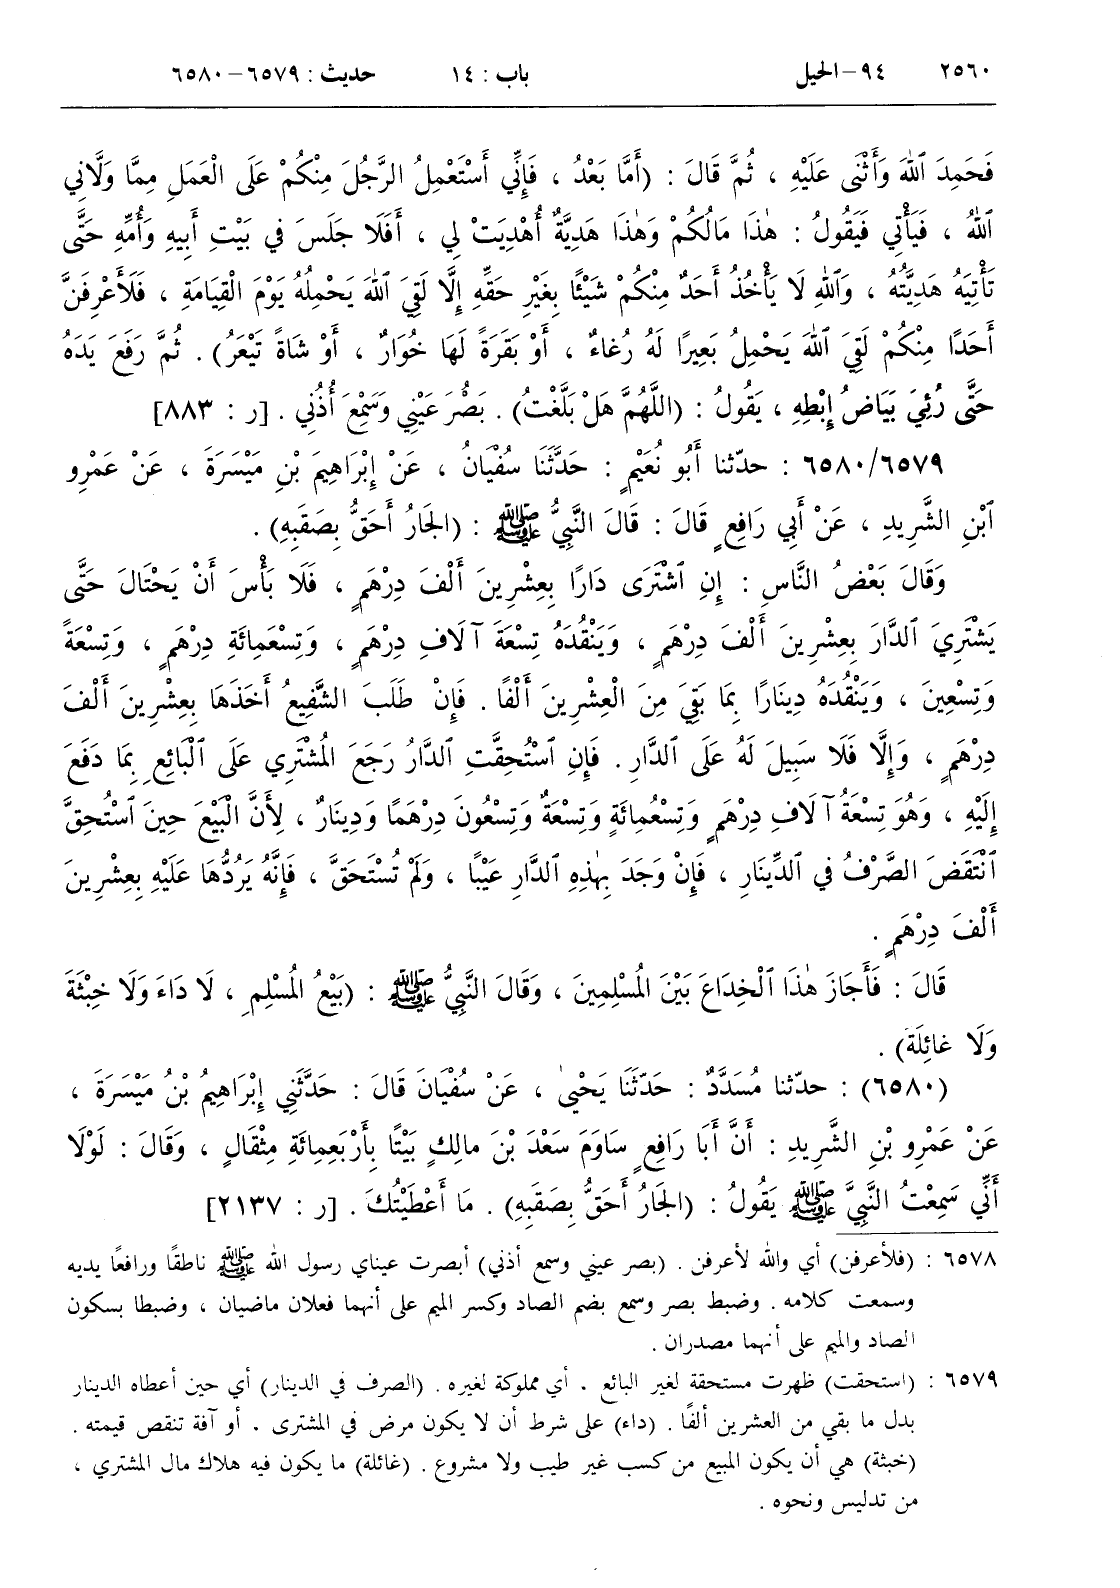 ٢٥٦٠ ٩٤-الحيل باب : ١٤ حديث : ٦٥٧٩-٦٥٨٠
فَحَمِدَ ٱللهَ وَأَثْنَى عَلَيْهِ ، ثُمَّ قَالَ : (أَمَّا بَعْدُ ، فَإِنِّي أَسْتَعْمِلُ الرَّجُلَ مِنْكُمْ عَلَى الْعَمَلِ مِمَّا وَلَّانِي
ٱللهُ ، فَيَأْتِي فَيَقُولُ : هٰذَا مَالُكُمْ وَهٰذَا هَدِيَّةٌ أُهْدِيَتْ لِي ، أَفَلَا جَلَسَ فِي بَيْتِ أَبِيهِ وَأُمِّهِ حَتَّى
تَأْتِيَهُ هَدِيَّتُهُ ، وَٱللهِ لَا يَأْخُذُ أَحَدٌ مِنْكُمْ شَيْئًا بِغَيْرِ حَقِّهِ إِلَّا لَقِيَ ٱللهَ يَحْمِلُهُ يَوْمَ الْقِيَامَةِ ، فَلَأَعْرِفَنَّ
أَحَدًا مِنْكُمْ لَقِيَ ٱللهَ يَحْمِلُ بَعِيرًا لَهُ رُغاءٌ ، أَوْ بَقَرَةً لَهَا خُوَارٌ ، أَوْ شَاةً تَيْعَرُ) . ثُمَّ رَفَعَ يَدَهُ
حَتَّى رُئِيَ بَيَاضُ إِبْطِهِ ، يَقُولُ : (اللَّهُمَّ هَلْ بَلَّغْتُ) . بَصُرَ عَيْنِي وَسَمِعَ أُذُنِي . [ر : ٨٨٣]
٦٥٨٠/٦٥٧٩ : حدّثنا أَبُو نُعَيْمٍ : حَدَّثَنَا سُفْيَانُ ، عَنْ إِبْرَاهِيمَ بْنِ مَيْسَرَةَ ، عَنْ عَمْرِو
ٱبْنِ الشَّرِيدِ ، عَنْ أَبِي رَافِعٍ قَالَ : قَالَ النَّبِيُّ ﷺ : (الجَارُ أَحَقُّ بِصَقَبِهِ) .
وَقَالَ بَعْضُ النَّاسِ : إِنِ ٱشْتَرَى دَارًا بِعِشْرِينَ أَلْفَ دِرْهَمٍ ، فَلَا بَأْسَ أَنْ يَحْتَالَ حَتَّى
يَشْتَرِيَ ٱلدَّارَ بِعِشْرِينَ أَلْفَ دِرْهَمٍ ، وَيَنْقُدَهُ تِسْعَةَ آلَافِ دِرْهَمٍ ، وَتِسْعَمِائَةِ دِرْهَمٍ ، وَتِسْعَةً
وَتِسْعِينَ ، وَيَنْقُدَهُ دِينَارًا بِمَا بَقِيَ مِنَ الْعِشْرِينَ أَلْفًا . فَإِنْ طَلَبَ الشَّفِيعُ أَخَذَهَا بِعِشْرِينَ أَلْفَ
دِرْهَمٍ ، وَإِلَّا فَلَا سَبِيلَ لَهُ عَلَى ٱلدَّارِ . فَإِنِ ٱسْتُحِقَّتِ ٱلدَّارُ رَجَعَ المُشْتَرِي عَلَى ٱلْبَائِعِ بِمَا دَفَعَ
إِلَيْهِ ، وَهُوَ تِسْعَةُ آلَافِ دِرْهَمٍ وَتِسْعُمِائَةٍ وَتِسْعَةٌ وَتِسْعُونَ دِرْهَمًا وَدِينَارٌ ، لِأَنَّ الْبَيْعَ حِينَ ٱسْتُحِقَّ
ٱنْتَقَضَ الصَّرْفُ فِي ٱلدِّينَارِ ، فَإِنْ وَجَدَ بِهٰذِهِ ٱلدَّارِ عَيْبًا ، وَلَمْ تُسْتَحَقَّ ، فَإِنَّهُ يَرُدُّهَا عَلَيْهِ بِعِشْرِينَ
أَلْفَ دِرْهَمٍ .
قَالَ : فَأَجَازَ هٰذَا ٱلْخِدَاعَ بَيْنَ المُسْلِمِينَ ، وَقَالَ النَّبِيُّ ﷺ : (بَيْعُ المُسْلِمِ ، لَا دَاءَ وَلَا خِبْثَةَ
وَلَا غائِلَةَ) .
(٦٥٨٠) : حدّثنا مُسَدَّدٌ : حَدَّثَنَا يَحْيىٰ ، عَنْ سُفْيَانَ قَالَ : حَدَّثَنِي إِبْرَاهِيمُ بْنُ مَيْسَرَةَ ،
عَنْ عَمْرِو بْنِ الشَّرِيدِ : أَنَّ أَبَا رَافِعٍ سَاوَمَ سَعْدَ بْنَ مالِكٍ بَيْتًا بِأَرْبَعِمِائَةِ مِثْقَالٍ ، وَقَالَ : لَوْلَا
أَنِّي سَمِعْتُ النَّبِيَّ ﷺ يَقُولُ : (الجَارُ أَحَقُّ بِصَقَبِهِ) . مَا أَعْطَيْتُكَ . [ر : ٢١٣٧]
٦٥٧٨ : (فلأعرفن) أي والله لأعرفن . (بصر عيني وسمع أذني) أبصرت عيناي رسول الله ﷺ ناطقًا ورافعًا يديه
وسمعت كلامه . وضبط بصر وسمع بضم الصاد وكسر الميم على أنهما فعلان ماضيان ، وضبطا بسكون
الصاد والميم على أنهما مصدران .
٦٥٧٩ : (استحقت) ظهرت مستحقة لغير البائع . أي مملوكة لغيره . (الصرف في الدينار) أي حين أعطاه الدينار
بدل ما بقي من العشرين ألفًا . (داء) على شرط أن لا يكون مرض في المشترى . أو آفة تنقص قيمته .
(خبثة) هي أن يكون المبيع من كسب غير طيب ولا مشروع . (غائلة) ما يكون فيه هلاك مال المشتري ،
من تدليس ونحوه .